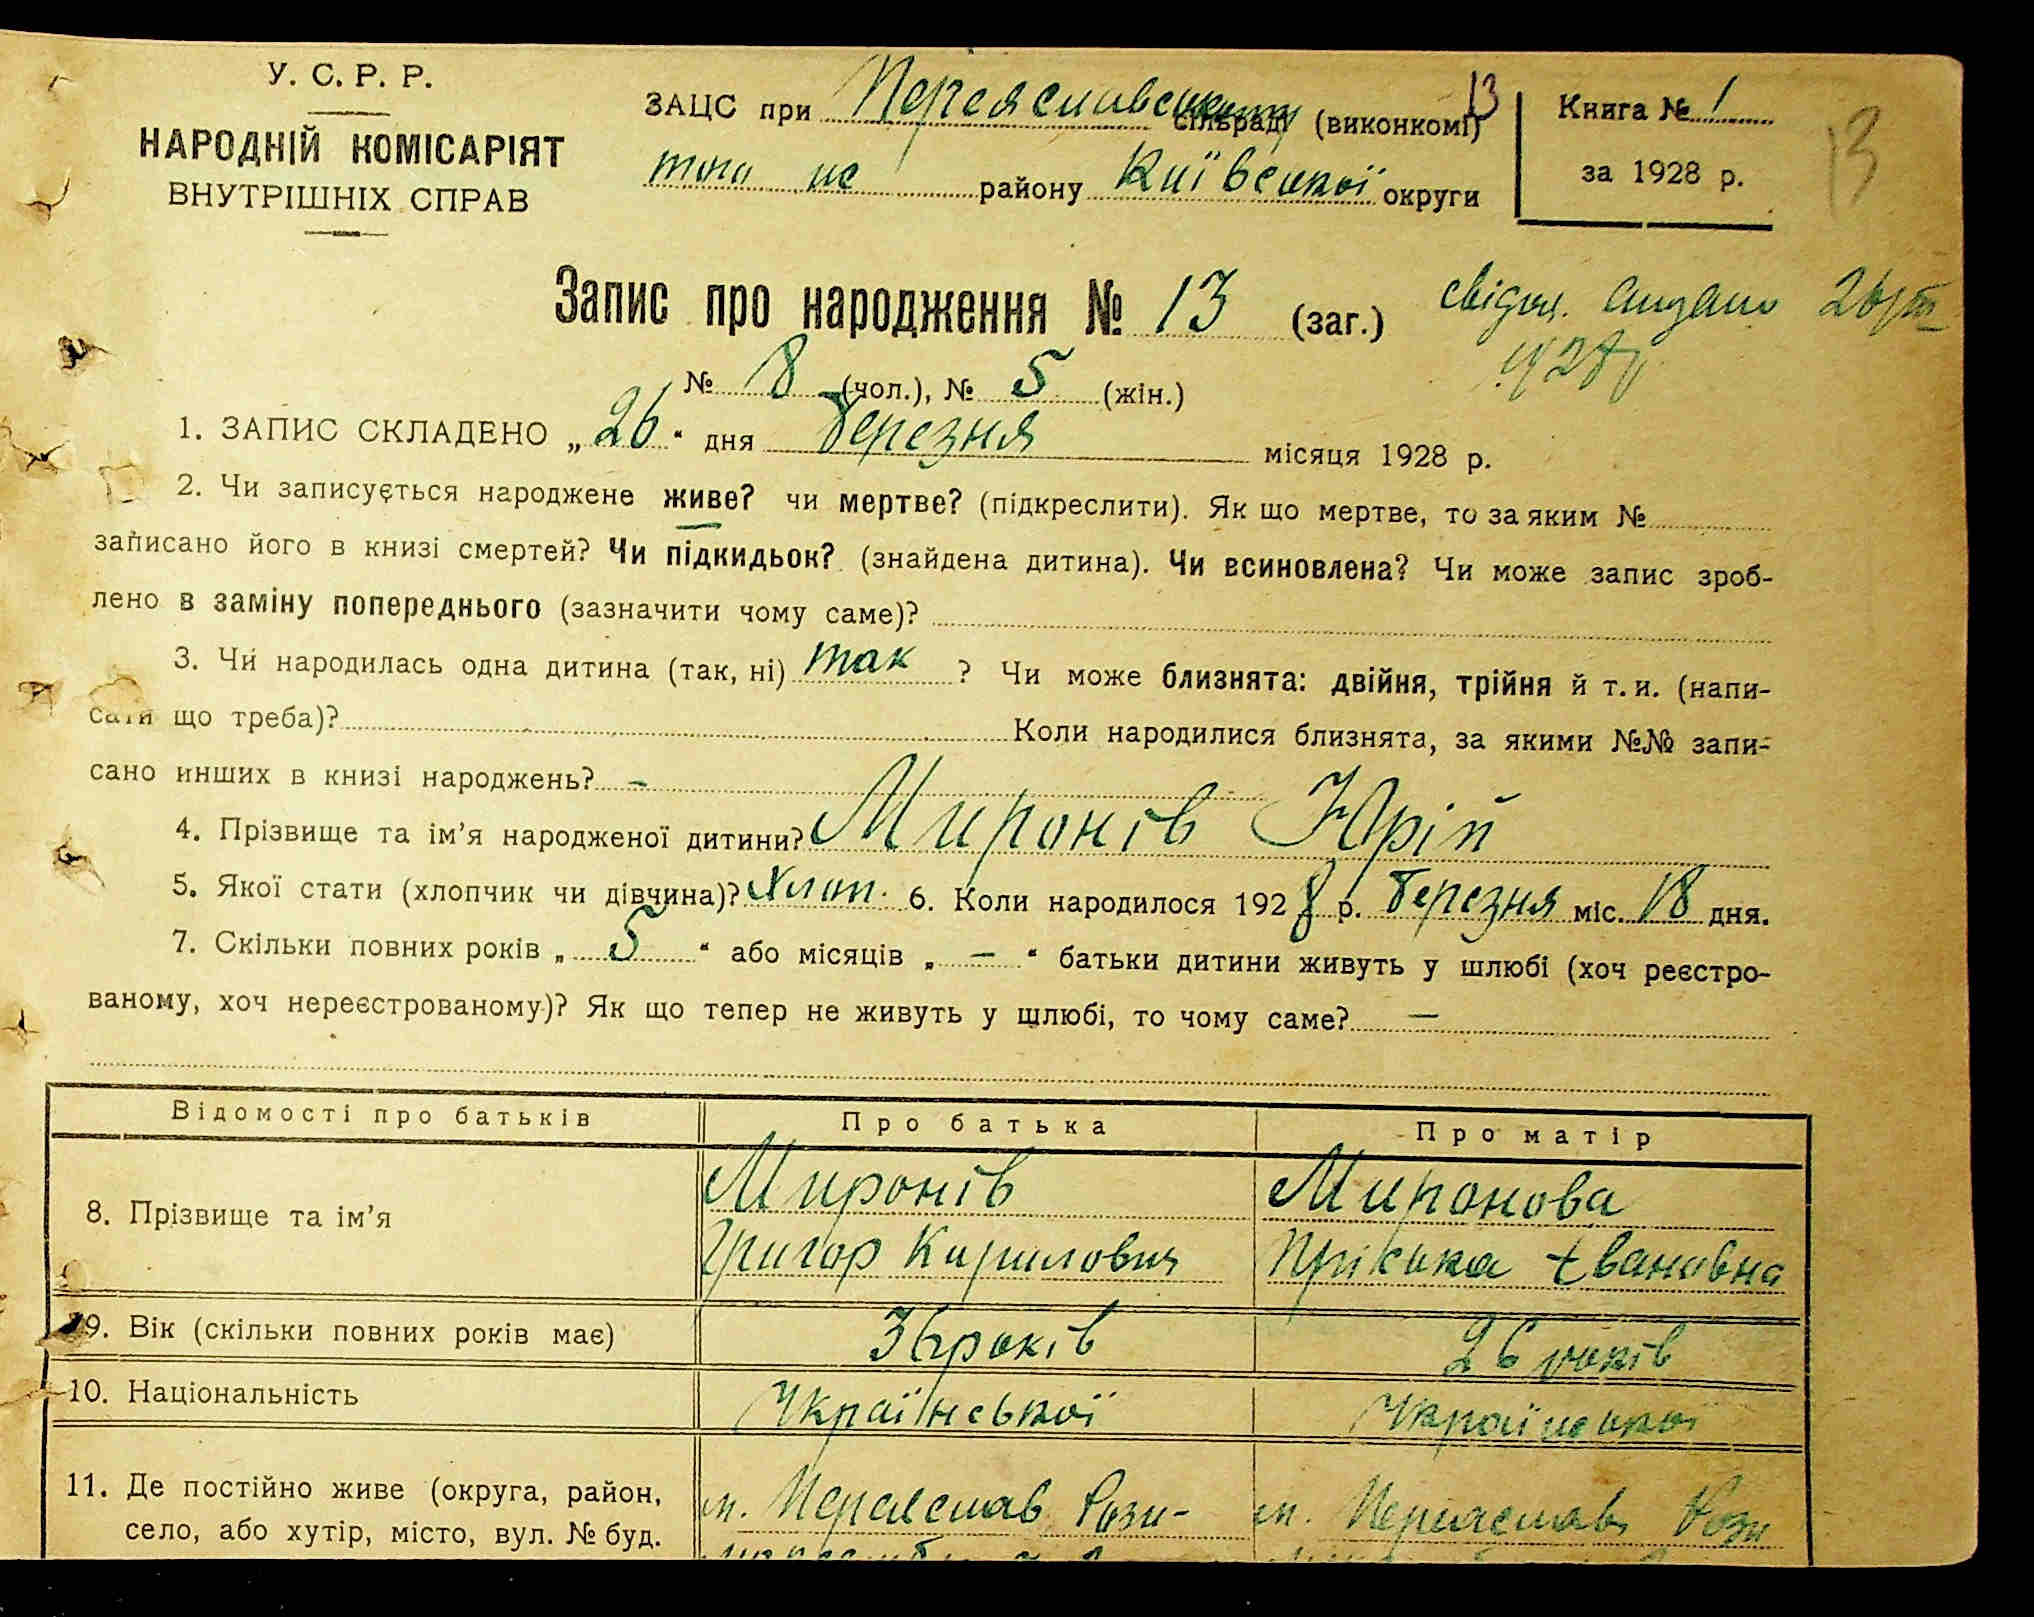 У. С. Р. Р.
НАРОДНІЙ КОМІСАРІЯТ
ВНУТРІШНІХ СПРАВ
ЗАЦС при Переяславському сільраді (виконкомі)
13
того ж району Київської округи
Книга № 1
за 1928 р.
13
Запис про народження № 13 (заг.)
свідоц. видано 26/III
1928 р
№ 8 (чол.), № 5 (жін.)
1. ЗАПИС СКЛАДЕНО „ 26 “ дня березня місяця 1928 р.
2. Чи записується народжене живе? чи мертве? (підкреслити). Як що мертве, то за яким №
записано його в книзі смертей? Чи підкидьок? (знайдена дитина). Чи всиновлена? Чи може запис зроб-
лено в заміну попереднього (зазначити чому саме)?
3. Чи народилась одна дитина (так, ні) так ? Чи може близнята: двійня, трійня й т. и. (напи-
сати що треба)? Коли народилися близнята, за якими №№ запи-
сано инших в книзі народжень? –
4. Прізвище та ім’я народженої дитини? Миронів Юрій
5. Якої стати (хлопчик чи дівчина)? Хлоп. 6. Коли народилося 1928 р. березня міс. 18 дня.
7. Скільки повних років „ 5 “ або місяців „ – “ батьки дитини живуть у шлюбі (хоч реєстро-
ваному, хоч нереєстрованому)? Як що тепер не живуть у шлюбі, то чому саме? –
Відомості про батьків Про батька Про матір
8. Прізвище та ім’я
Миронів
Григор Кирилович
Миронова
Пріська Івановна
9. Вік (скільки повних років має) 36 років 26 років
10. Національність Української Української
11. Де постійно живе (округа, район,
село, або хутір, місто, вул. № буд.
м. Переяслав
м. Переяслав